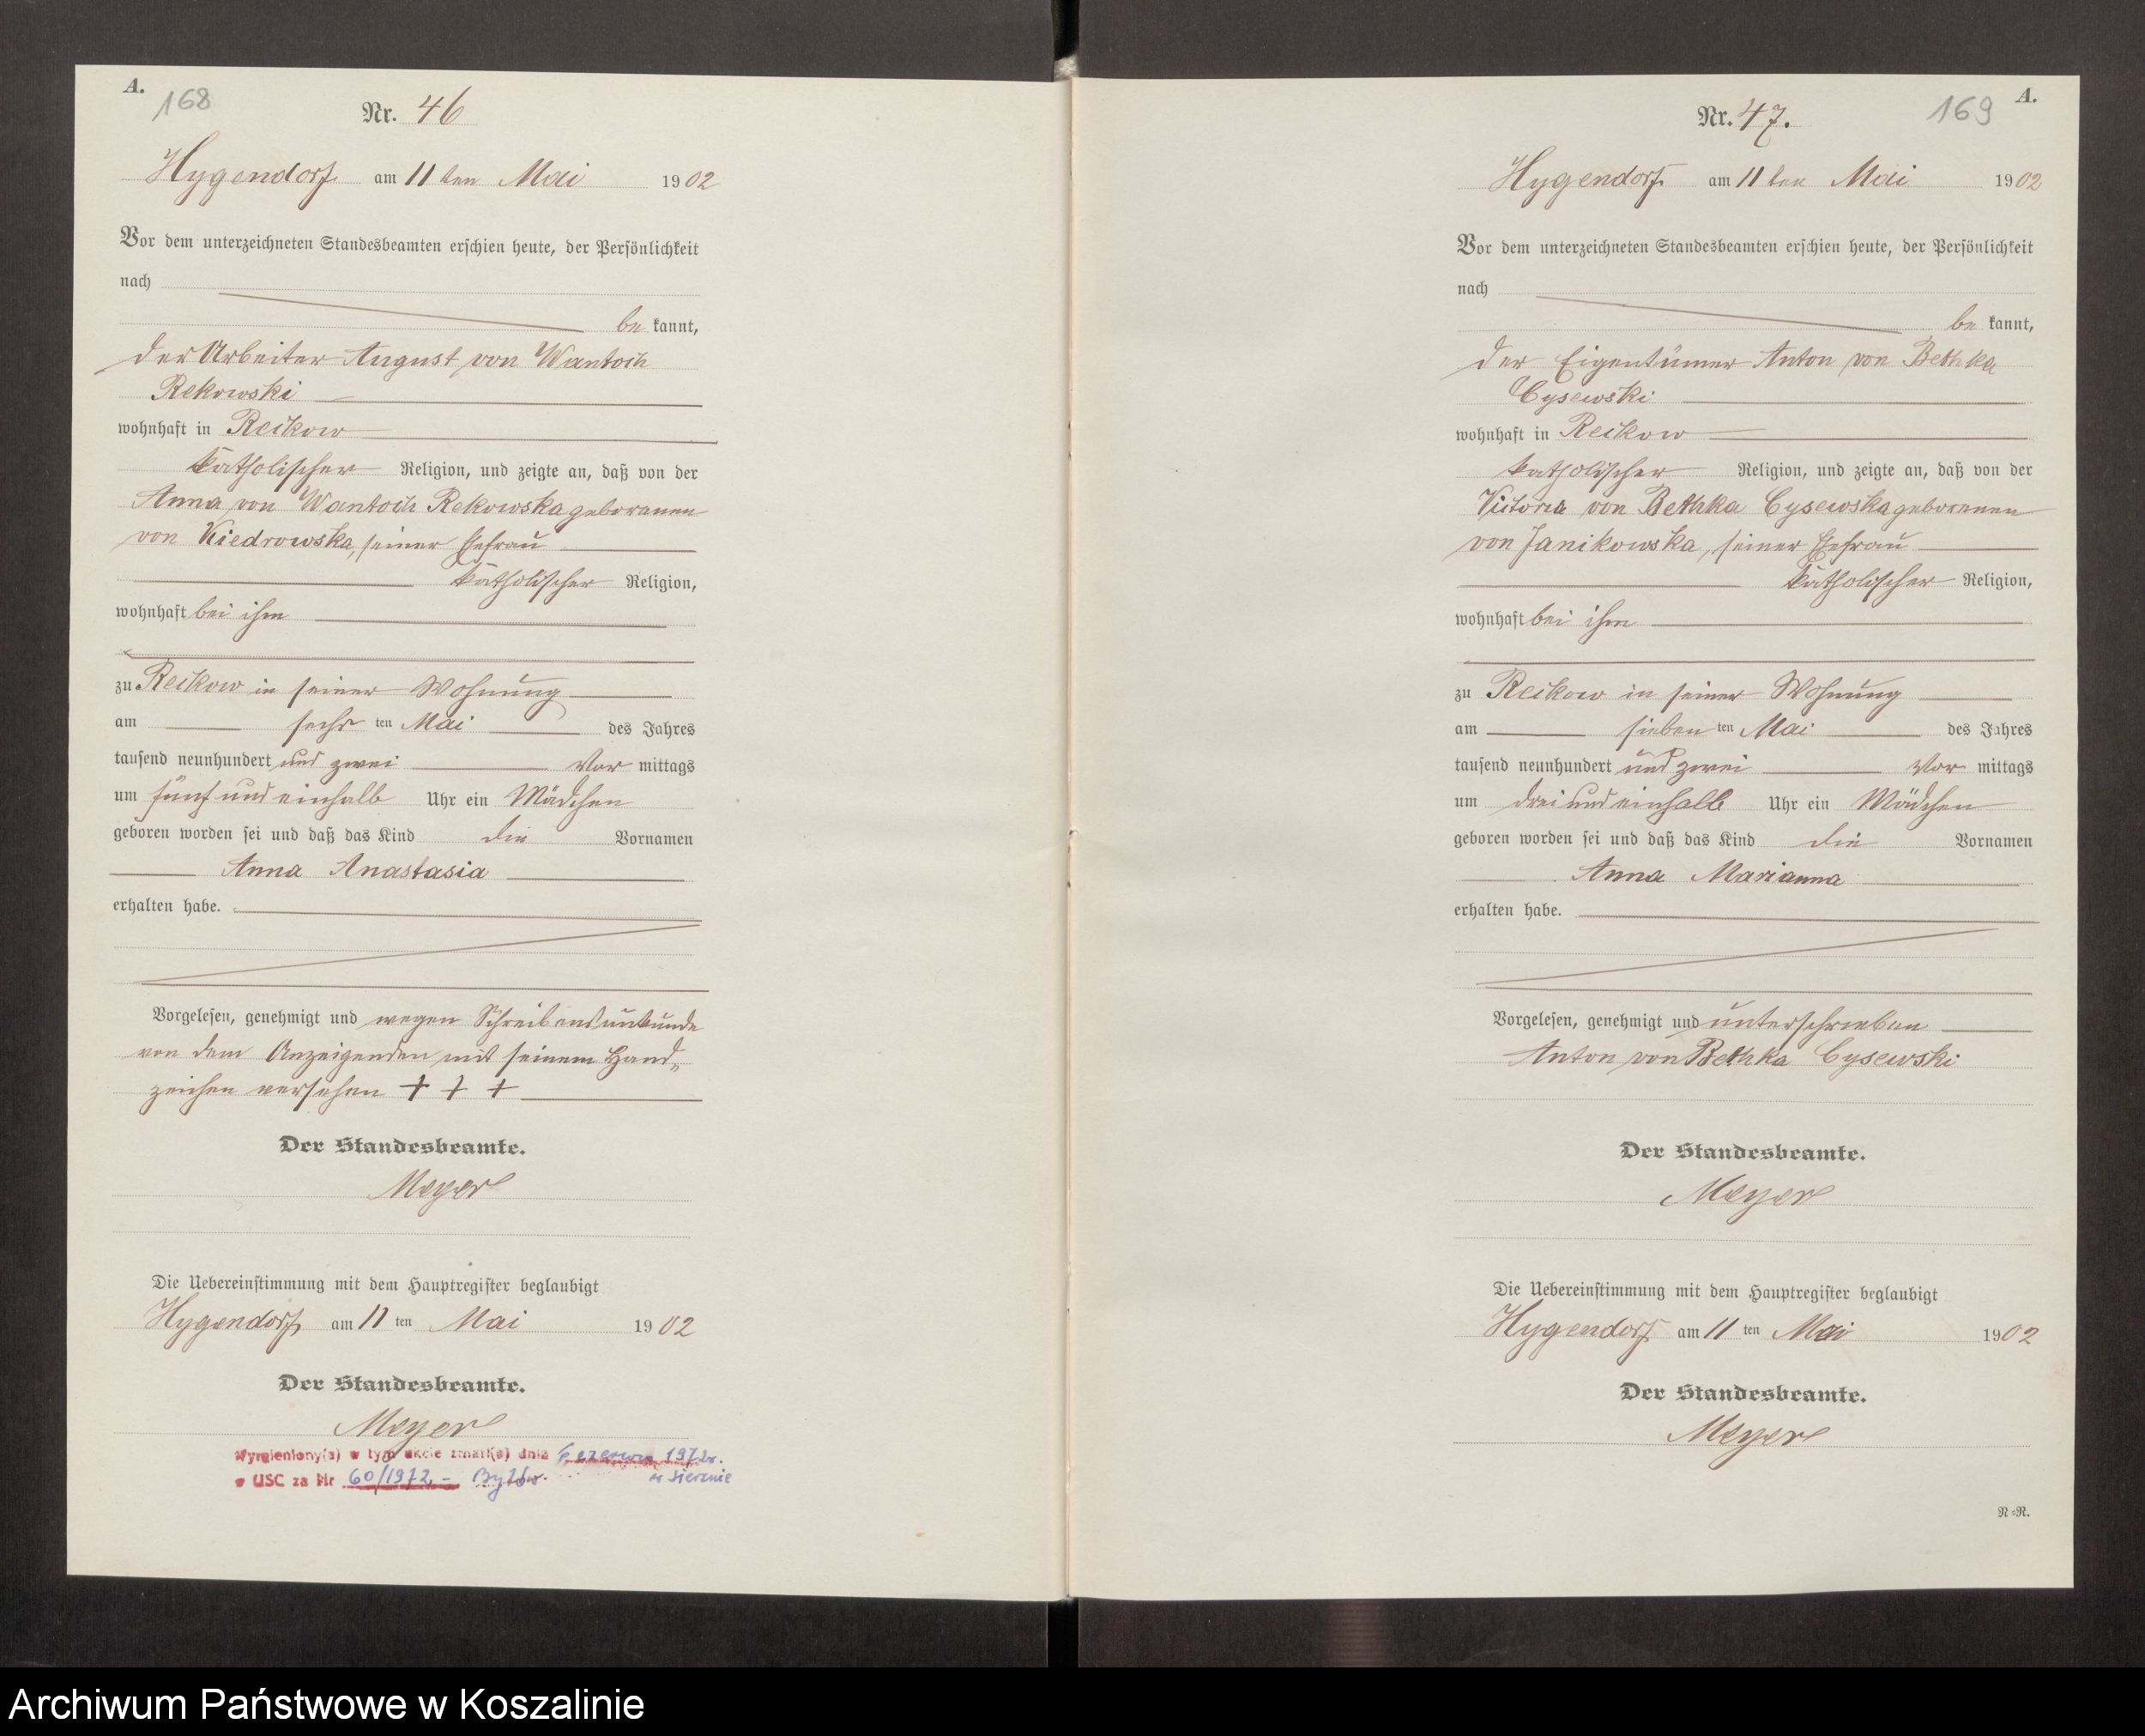 A.
168
Nr. 46
Hygendorf am 11 ten Mai 1902
Vor dem unterzeichneten Standesbeamten erschien heute, der Persönlichkeit
nach
be kannt,
der Arbeiter August von Wantoch
Rekowski
wohnhaft in Reckow
katholischer Religion, und zeigte an, daß von der
Anna von Wantoch Rekowska geborenen
von Kiedrowska, seiner Ehefrau
katholischer Religion,
wohnhaft bei ihm
zu Reckow in seiner Wohnung
am sechs ten Mai des Jahres
tausend neunhundert und zwei Vor mittags
um fünf und einhalb Uhr ein Mädchen
geboren worden sei und daß das Kind die Vornamen
Anna Anastasia
erhalten habe.
Vorgelesen, genehmigt und wegen Schreibensunkunde
von dem Anzeigenden mit seinem Hand„
zeichen versehen + + +
Der Standesbeamte.
Meyer
Die Uebereinstimmung mit dem Hauptregister beglaubigt
Hygendorf am 11 ten Mai 1902
Der Standesbeamte.
Meyer
Wymieniony(a) w tym akcie zmarł(a) dnia 6 czerwca 1972r.
w USC za Nr 60/1972, - Bytów. w Siercnie
A.
169
Nr. 47.
Hygendorf am 11 ten Mai 1902
Vor dem unterzeichneten Standesbeamten erschien heute, der Persönlichkeit
nach
be kannt,
der Eigentümer Anton von Bethka
Cysewski
wohnhaft in Reckow
katholischer Religion, und zeigte an, daß von der
Victoria von Bethka Cysewska geborenen
von Janikowska, seiner Ehefrau
katholischer Religion,
wohnhaft bei ihm
zu Reckow in seiner Wohnung
am sieben ten Mai des Jahres
tausend neunhundert und zwei Vor mittags
um drei und einhalb Uhr ein Mädchen
geboren worden sei und daß das Kind die Vornamen
Anna Marianna
erhalten habe.
Vorgelesen, genehmigt und unterschrieben
Anton von Bethka Cysewski
Der Standesbeamte.
Meyer
Die Uebereinstimmung mit dem Hauptregister beglaubigt
Hygendorf am 11 ten Mai 1902
Der Standesbeamte.
Meyer
N=R.
Archiwum Państwowe w Koszalinie